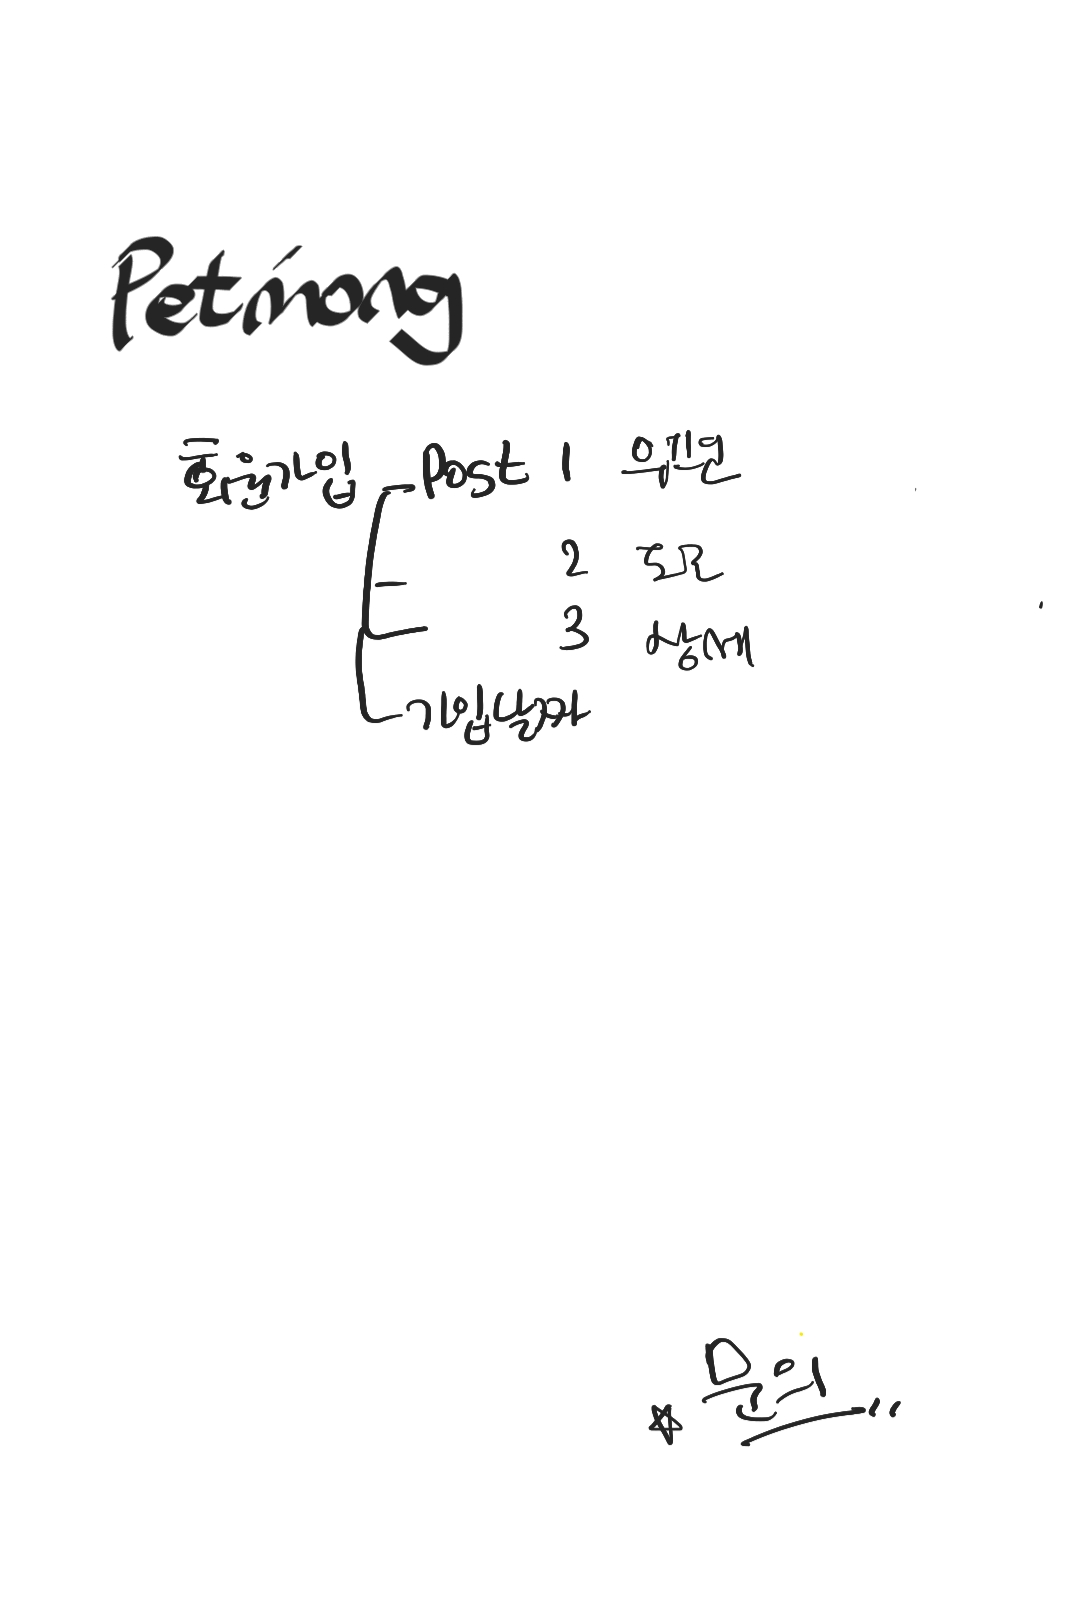 Petmong
회원가입 Post 1 우편번
2 도로
3 상세
가입날짜
☆ 문의